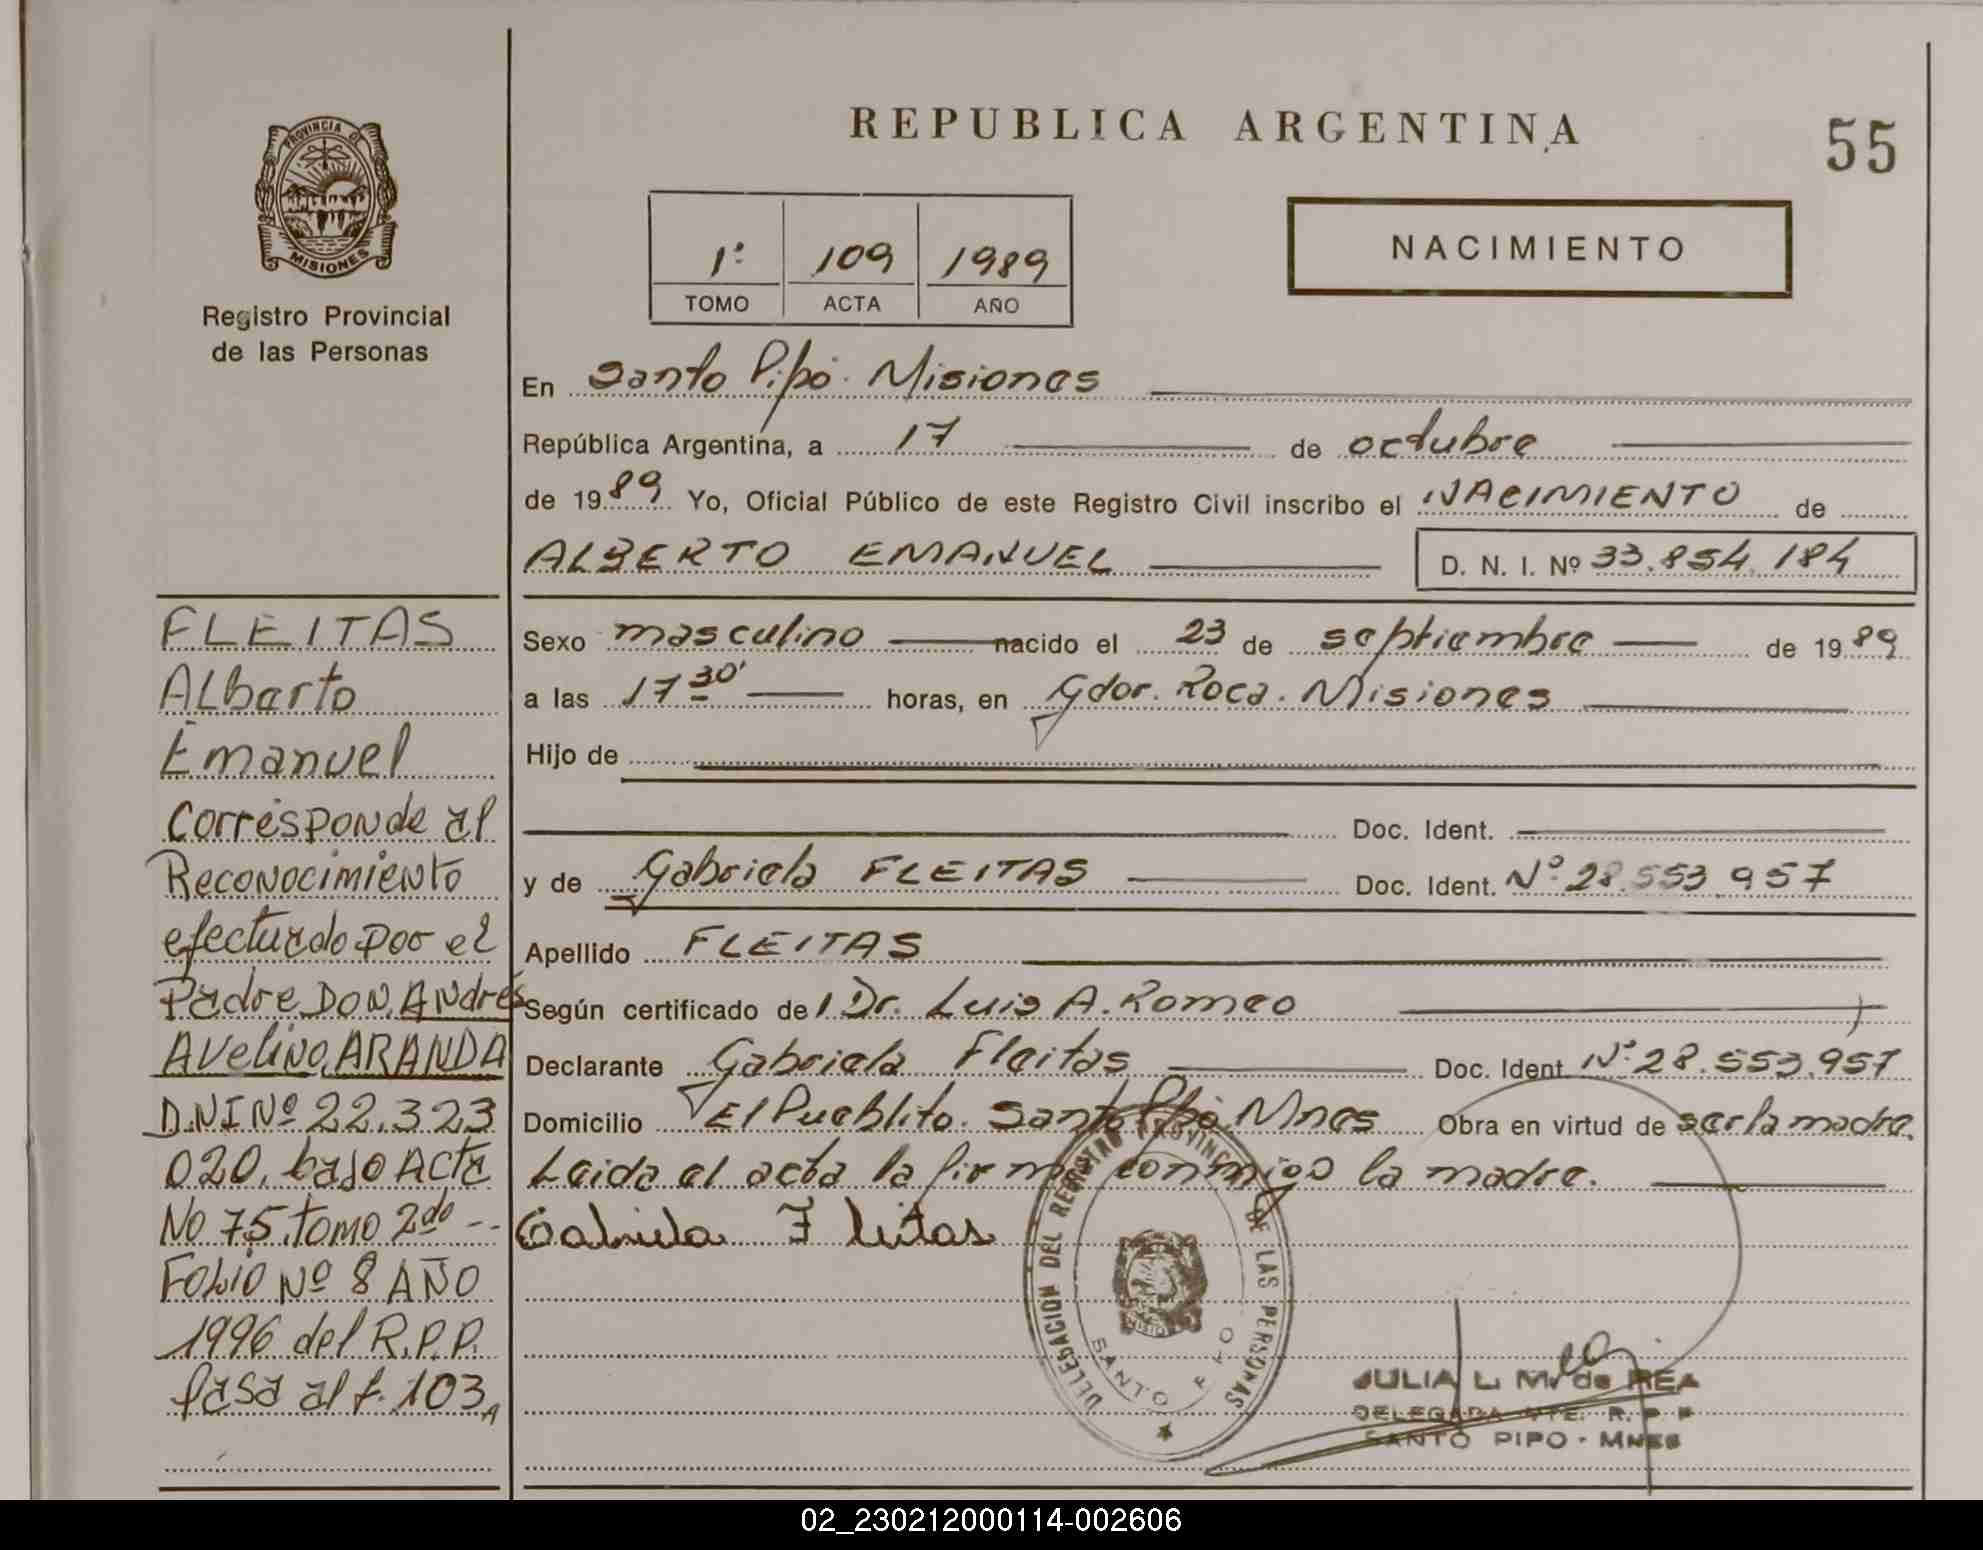 REPUBLICA ARGENTINA
55
PROVINCIA DE
MISIONES
Registro Provincial
de las Personas
1º 109 1989
TOMO ACTA AÑO
NACIMIENTO
En Santo Pipó. Misiones
República Argentina, a 17 de octubre
de 1989 Yo, Oficial Público de este Registro Civil inscribo el NACIMIENTO de
ALBERTO EMANUEL D. N. I. Nº 33.854.184
Sexo masculino nacido el 23 de septiembre de 1989
a las 17 30' horas, en Gdor. Roca. Misiones
Hijo de
Doc. Ident.
y de Gabriela FLEITAS Doc. Ident. Nº 28.553.957
Apellido FLEITAS
Según certificado de Dr. Luis A. Romeo
Declarante Gabriela Fleitas Doc. Ident. Nº 28.553.957
Domicilio El Pueblito. Santo Pipó. Mnes Obra en virtud de ser la madre.
Leida el acta la firma conmigo la madre.
Gabriela Fleitas
FLEITAS
Alberto
Emanuel
Corresponde al
Reconocimiento
efectuado por el
Padre DON. Andrés
Avelino ARANDA
D.N.I Nº 22.323
020. bajo Acta
No 75. tomo 2do --
Folio Nº 8 AÑO
1996 del R.P.P.
Pasa al f. 103
DELEGACION DEL REGISTRO PROVINCIAL DE LAS PERSONAS
SANTO PIPO
JULIA L. M. de REA
DELEGADA R. P. P
SANTO PIPO - MNES
02_230212000114-002606